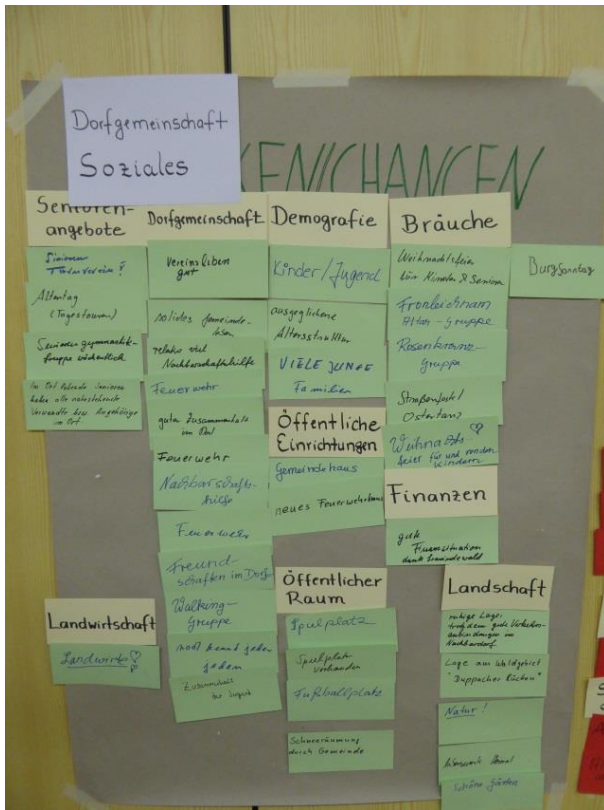 Dorfgemeinschaft
Soziales
KEN/CHANCEN
Senioren-
angebote
Senioren
Altentag
(Tagestouren)
Seniorengymnastik-
gruppe wöchentlich
Im Ort lebende Senioren
haben alle nahestehende
Verwandte bzw. Angehörige
im Ort
Dorfgemeinschaft
Vereinsleben
gut
solides Gemeinde-
leben
relativ viel
Nachbarschaftshilfe
Feuerwehr
guter Zusammenhalt
im Ort
Feuerwehr
Nachbarschafts-
hilfe
Feuerwehr
Freund-
schaften im Dorf
Walking-
Gruppe
noch kennt jeder
jeden
Zusammenhalt
der Jugend
Demografie
Kinder/Jugend
ausgeglichene
Altersstruktur
VIELE JUNGE
Familien
Öffentliche
Einrichtungen
Gemeindehaus
neues Feuerwehrhaus
Öffentlicher
Raum
Spielplatz
Spielplatz
vorhanden
Fußballplatz
Schneeräumung
durch Gemeinde
Bräuche
Weihnachtsfeier
für Kinder & Senioren
Fronleichnam
Altar-Gruppe
Rosenkranz-
Gruppe
Straßenfest/
Ostertanz
Weihnachts
feier für und von den
Kindern
Burgsonntag
Finanzen
gute
Finanzsituation
dank Gemeindewald
Landschaft
ruhige Lage,
trotzdem gute Verkehrs-
anbindungen im
Nachbardorf
Lage am Waldgebiet
"Duppacher Rücken"
Natur!
Schöne Gärten
Landwirtschaft
Landwirte